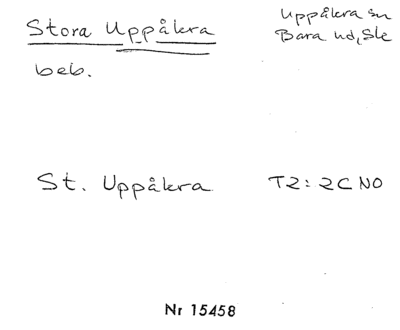 Stora Uppåkra
Uppåkra sn
Bara hd, Skå
beb.
St. Uppåkra T2: 2C NO
Nr 15458